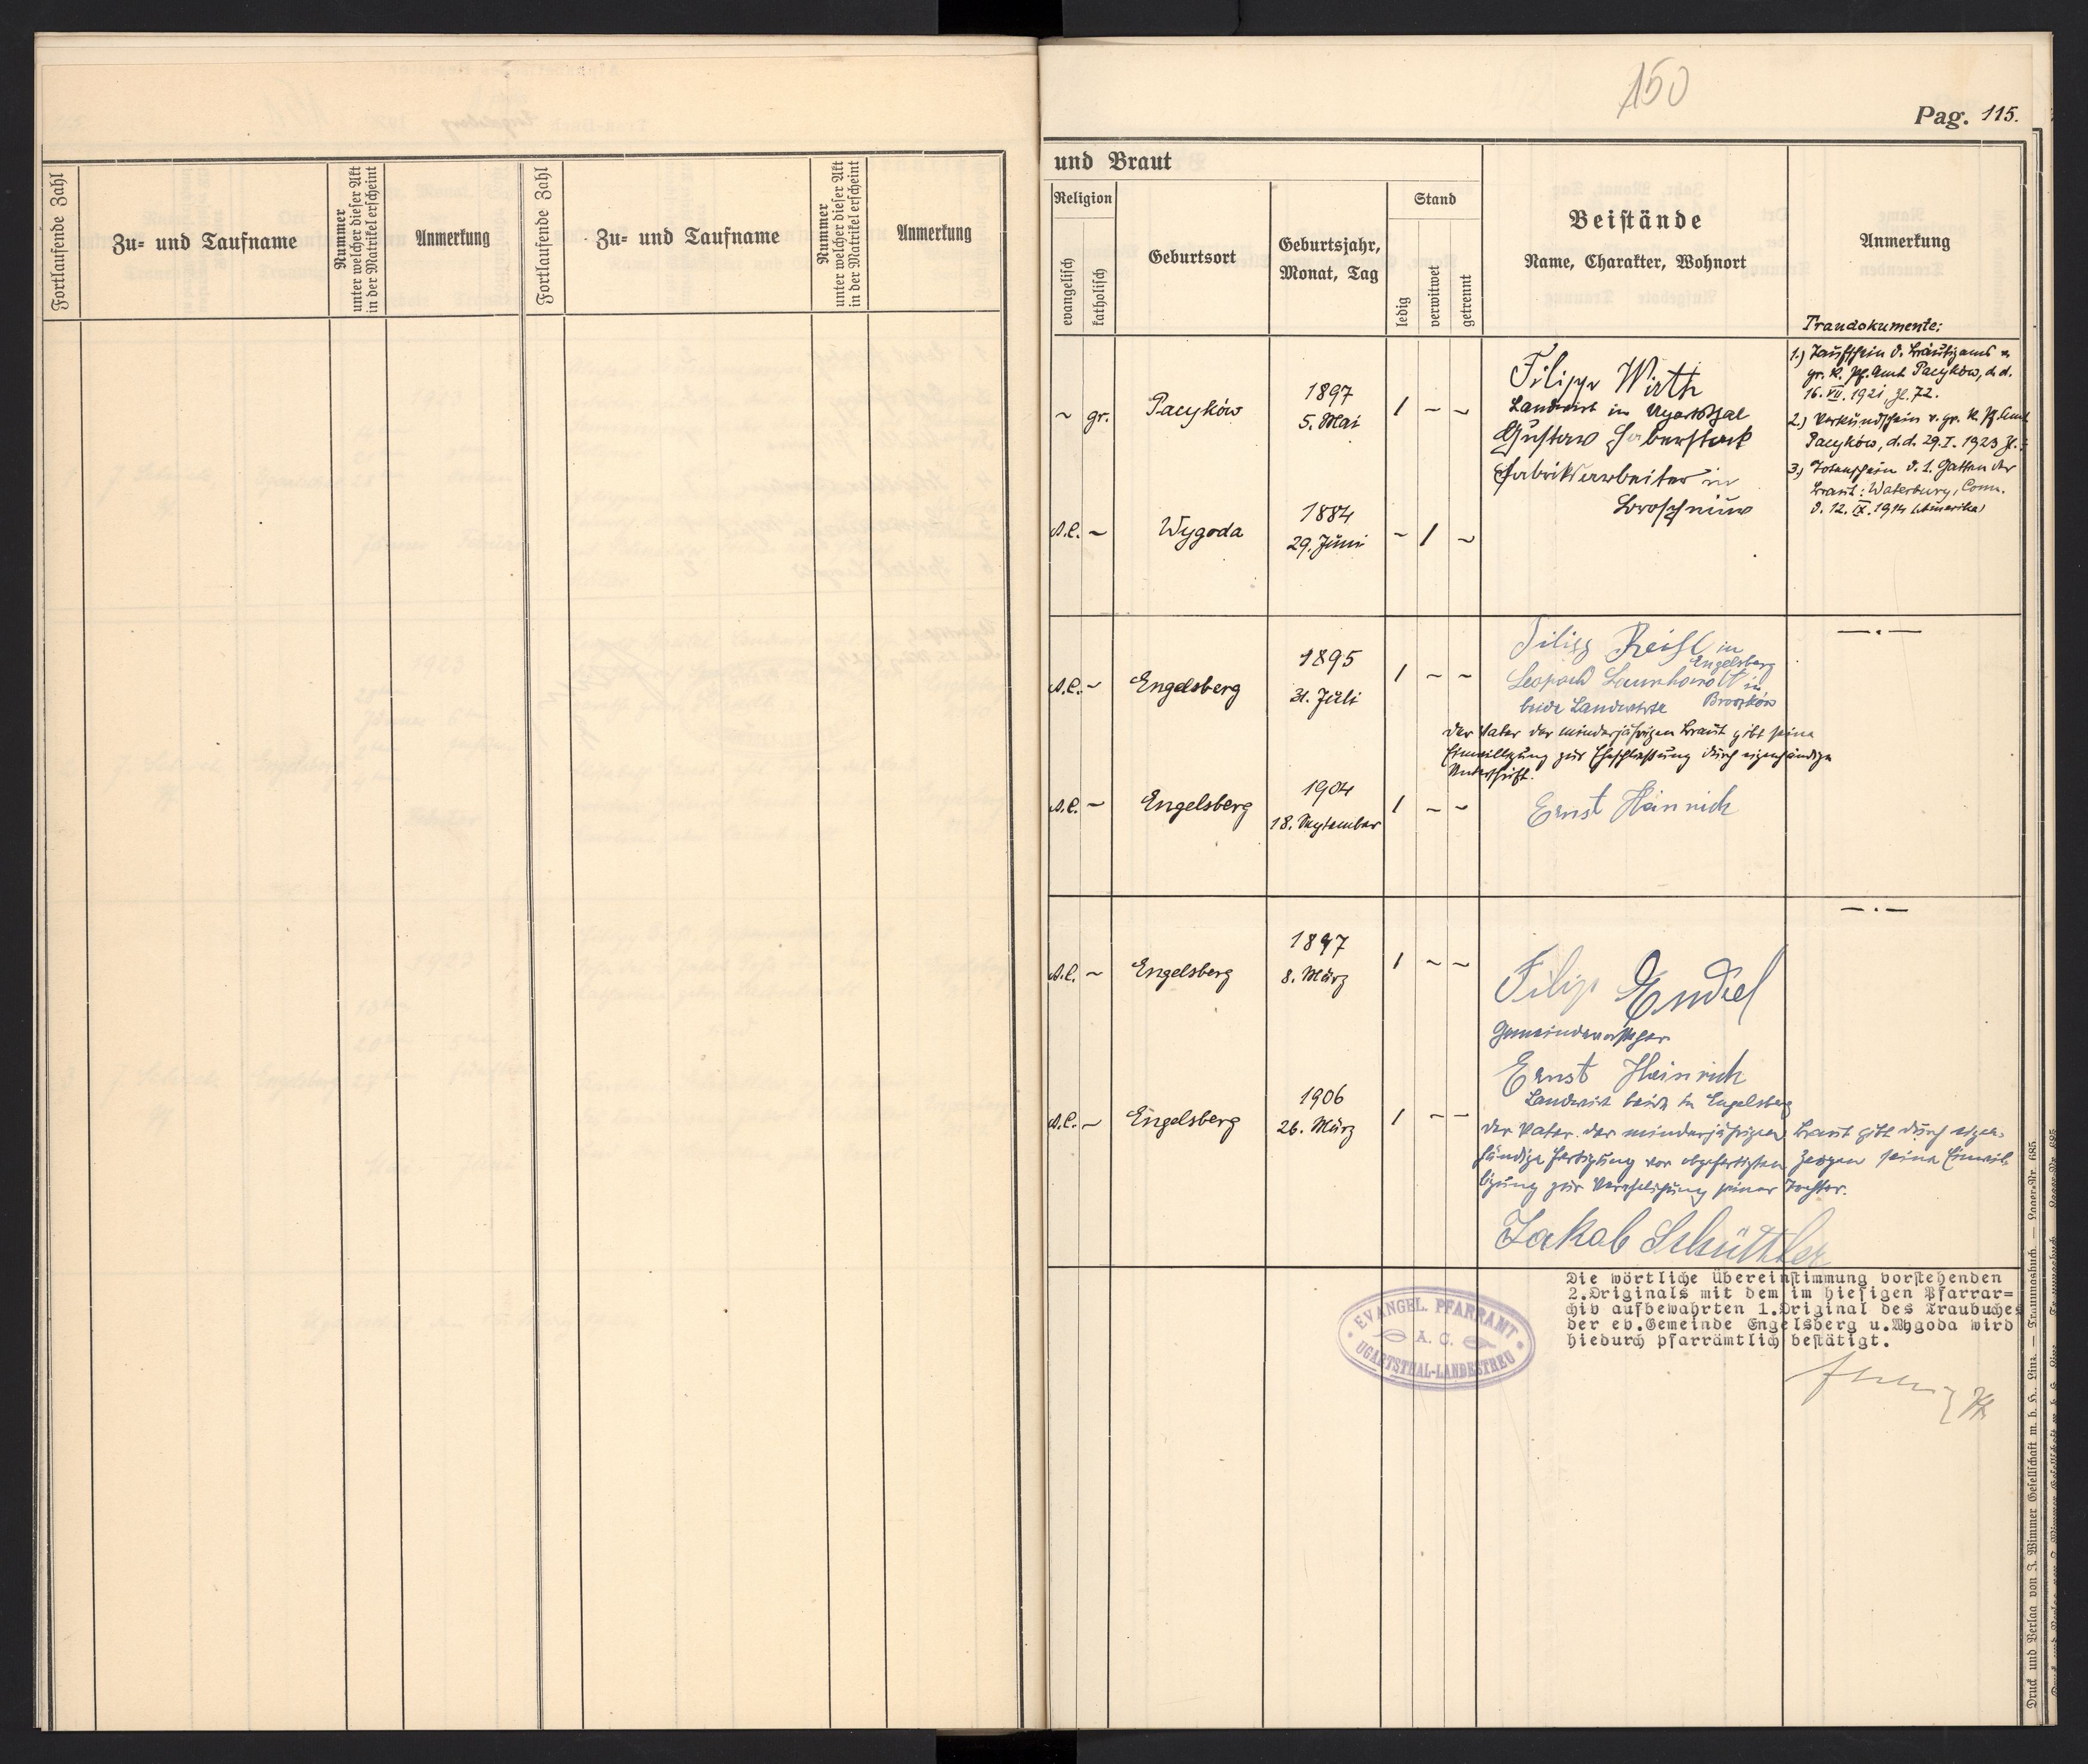 150
Pag. 115.
Fortlaufende Zahl
Zu- und Taufname
Nummer
unter welcher dieser Akt
in der Matrikel erscheint
Anmerkung
Fortlaufende Zahl
Zu- und Taufname
Nummer
unter welcher dieser Akt
in der Matrikel erscheint
Anmerkung
und Braut
Religion
evangelisch
katholisch
Geburtsort
Geburtsjahr,
Monat, Tag
Stand
ledig
verwitwet
getrennt
Beistände
Name, Charakter, Wohnort
Anmerkung
Traudokumente:
~ gr. Pacyków
1897
5. Mai
1 ~ ~
Filipp Wirth
Landwirt in Ugartsthal
Gustaw Haberstock
Fabriksarbeiter in
1.) Taufschein d. Bräutigams v.
gr. k. Pf. Amt Pacyków, d.d.
16. VII. 1921, Zl. 72.
2.) Verkündschein v. gr. k. Pf. Amt
Pacyków, d.d. 29. I. 1923 Zl.
3.) Totenschein d. 1. Gatten der
Braut: Waterbury, Conn.
d. 12. IX. 1914 (Amerika)
A.C. ~ Wygoda
1884
29. Juni
~ 1 ~
A.C. ~ Engelsberg
1895
31. Juli
1 ~ ~
Filipp Reisl in
Engelsberg
Leopold in
beide Landwirte
—.—
der Vater der minderjährigen Braut gibt seine
Einwilligung zur Eheschließung durch eigenhändige
Unterschrift.
A.C. ~ Engelsberg
1904
18. September
1 ~ ~
Ernst Heinrich
A.C. ~ Engelsberg
1897
8. März
1 ~ ~
Filip Endel
Gemeindevorsteher
Ernst Heinrich
Landwirt beide in Engelsberg
—.—
A.C. ~ Engelsberg
1906
26. März
1 ~ ~
der Vater der minderjährigen Braut gibt durch eigen-
händige Fertigung vor abgefertigten Zeugen seine Einwil-
ligung zur Verehelichung seiner Tochter.
Jakob Schüttler
Die wörtliche Übereinstimmung vorstehenden
2.Originals mit dem im hiesigen Pfarrar=
chiv aufbewahrten 1.Original des Traubuches
der ev.Gemeinde Engelsberg u.Wygoda wird
hiedurch pfarrämtlich bestätigt.
EVANGEL. PFARRAMT
A. C.
UGARTSTHAL-LANDESTREU
Druck und Verlag von J. Wimmer Gesellschaft m. b. H., Linz. — Trauungsbuch. — Lager-Nr. 685.